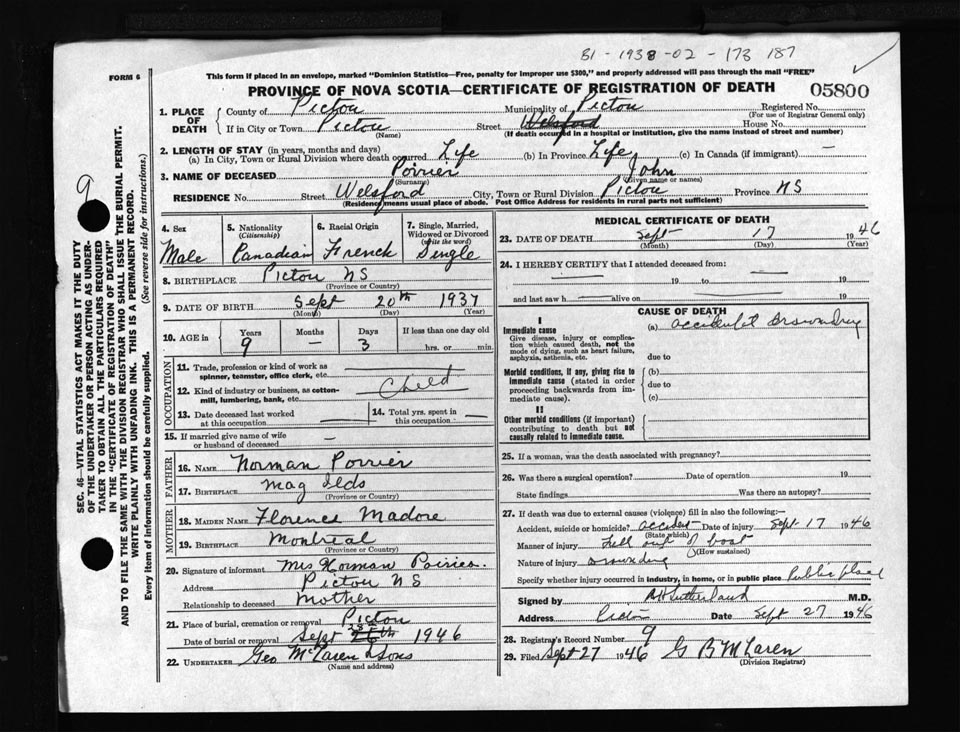 B1-1938-02-173 187
FORM 6
This form if placed in an envelope, marked "Dominion Statistics—Free, penalty for improper use $300," and properly addressed will pass through the mail "FREE"
PROVINCE OF NOVA SCOTIA—CERTIFICATE OF REGISTRATION OF DEATH 05800
1. PLACE OF DEATH County of Pictou Municipality of Pictou Registered No.
(For use of Registrar General only)
If in City or Town Pictou Street Welsford House No.
(Name) (If death occurred in a hospital or institution, give the name instead of street and number)
2. LENGTH OF STAY (in years, months and days)
(a) In City, Town or Rural Division where death occurred Life (b) In Province Life (c) In Canada (if immigrant) —
3. NAME OF DECEASED Poirier John
(Surname) (Given name or names)
RESIDENCE No. Street Welsford City, Town or Rural Division Pictou Province NS
(Residence means usual place of abode. Post Office Address for residents in rural parts not sufficient)
4. Sex Male
5. Nationality (Citizenship) Canadian
6. Racial Origin French
7. Single, Married, Widowed or Divorced (write the word) Single
8. BIRTHPLACE Pictou NS
(Province or Country)
9. DATE OF BIRTH Sept 20th 1937
(Month) (Day) (Year)
10. AGE in Years Months Days If less than one day old
9 — 3 hrs. or min.
OCCUPATION
11. Trade, profession or kind of work as spinner, teamster, office clerk, etc.
12. Kind of industry or business, as cotton-mill, lumbering, bank, etc. Child
13. Date deceased last worked at this occupation
14. Total yrs. spent in this occupation —
15. If married give name of wife or husband of deceased —
FATHER
16. NAME Norman Poirier
17. BIRTHPLACE Mag Ilds
(Province or Country)
MOTHER
18. MAIDEN NAME Florence Madore
19. BIRTHPLACE Montreal
(Province or Country)
20. Signature of informant Mrs Norman Poirier
Address Pictou NS
Relationship to deceased Mother
21. Place of burial, cremation or removal Pictou
Date of burial or removal Sept 1946
22. UNDERTAKER Geo McLaren & Sons
(Name and address)
MEDICAL CERTIFICATE OF DEATH
23. DATE OF DEATH Sept 17 1946
(Month) (Day) (Year)
24. I HEREBY CERTIFY that I attended deceased from:
19 to 19
and last saw h alive on 19
CAUSE OF DEATH
I
Immediate cause (a) accidental Drowning
Give disease, injury or complication which caused death, not the mode of dying, such as heart failure, asphyxia, asthenia, etc.
due to
Morbid conditions, if any, giving rise to immediate cause (stated in order proceeding backwards from immediate cause).
(b)
due to
(c)
II
Other morbid conditions (if important) contributing to death but not causally related to immediate cause.
25. If a woman, was the death associated with pregnancy?
26. Was there a surgical operation? Date of operation 19
State findings Was there an autopsy?
27. If death was due to external causes (violence) fill in also the following:—
Accident, suicide or homicide? accident Date of injury Sept 17 1946
(State which)
Manner of injury Fell out of boat
(How sustained)
Nature of injury Drowning
Specify whether injury occurred in industry, in home, or in public place Public place
Signed by Sutherland M.D.
Address Pictou Date Sept 27 1946
28. Registrar's Record Number 9
29. Filed Sept 27 1946 G B McLaren
(Division Registrar)
9
SEC. 46—VITAL STATISTICS ACT MAKES IT THE DUTY
OF THE UNDERTAKER OR PERSON ACTING AS UNDER-
TAKER TO OBTAIN ALL THE PARTICULARS REQUIRED
IN THE "CERTIFICATE OF REGISTRATION OF DEATH"
AND TO FILE THE SAME WITH THE DIVISION REGISTRAR WHO SHALL ISSUE THE BURIAL PERMIT.
WRITE PLAINLY WITH UNFADING INK. THIS IS A PERMANENT RECORD.
Every item of information should be carefully supplied. (See reverse side for instructions.)